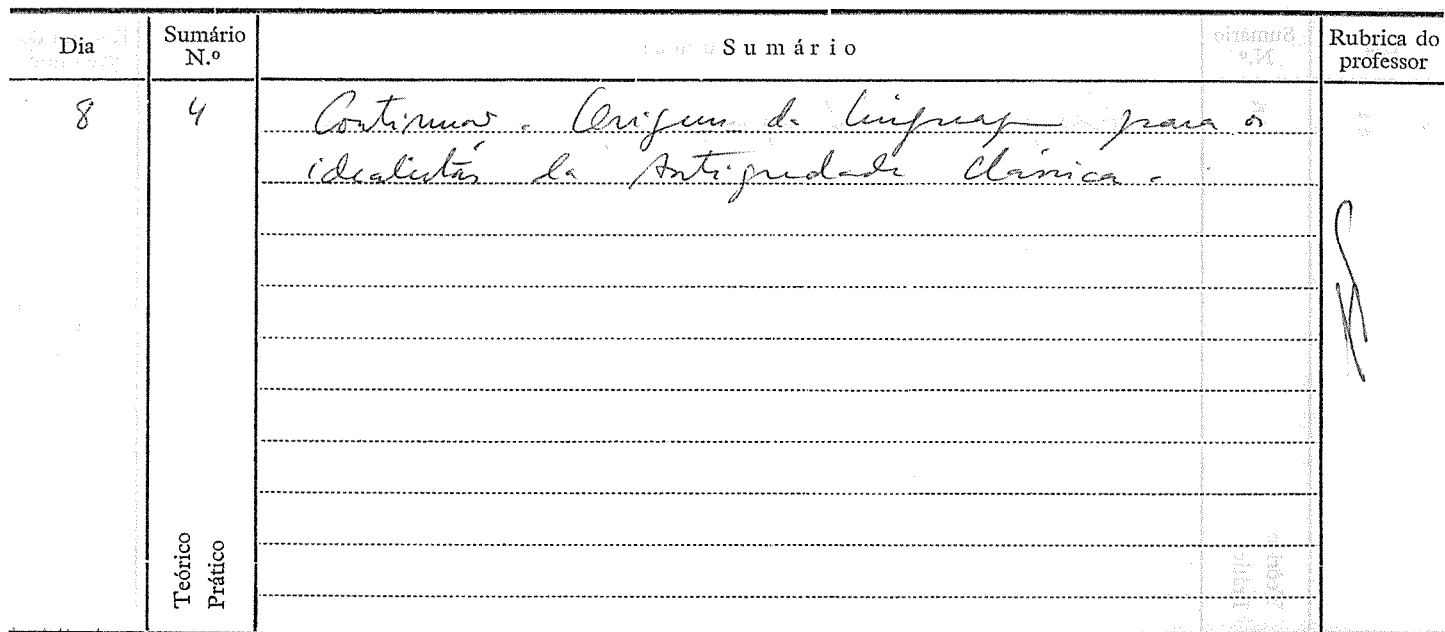 Dia
Sumário N.º
Sumário
Rubrica do professor
8
4
Continuar. Origem da linguagem para os
idealistas da Antiguidade Clássica.
Teórico
Prático